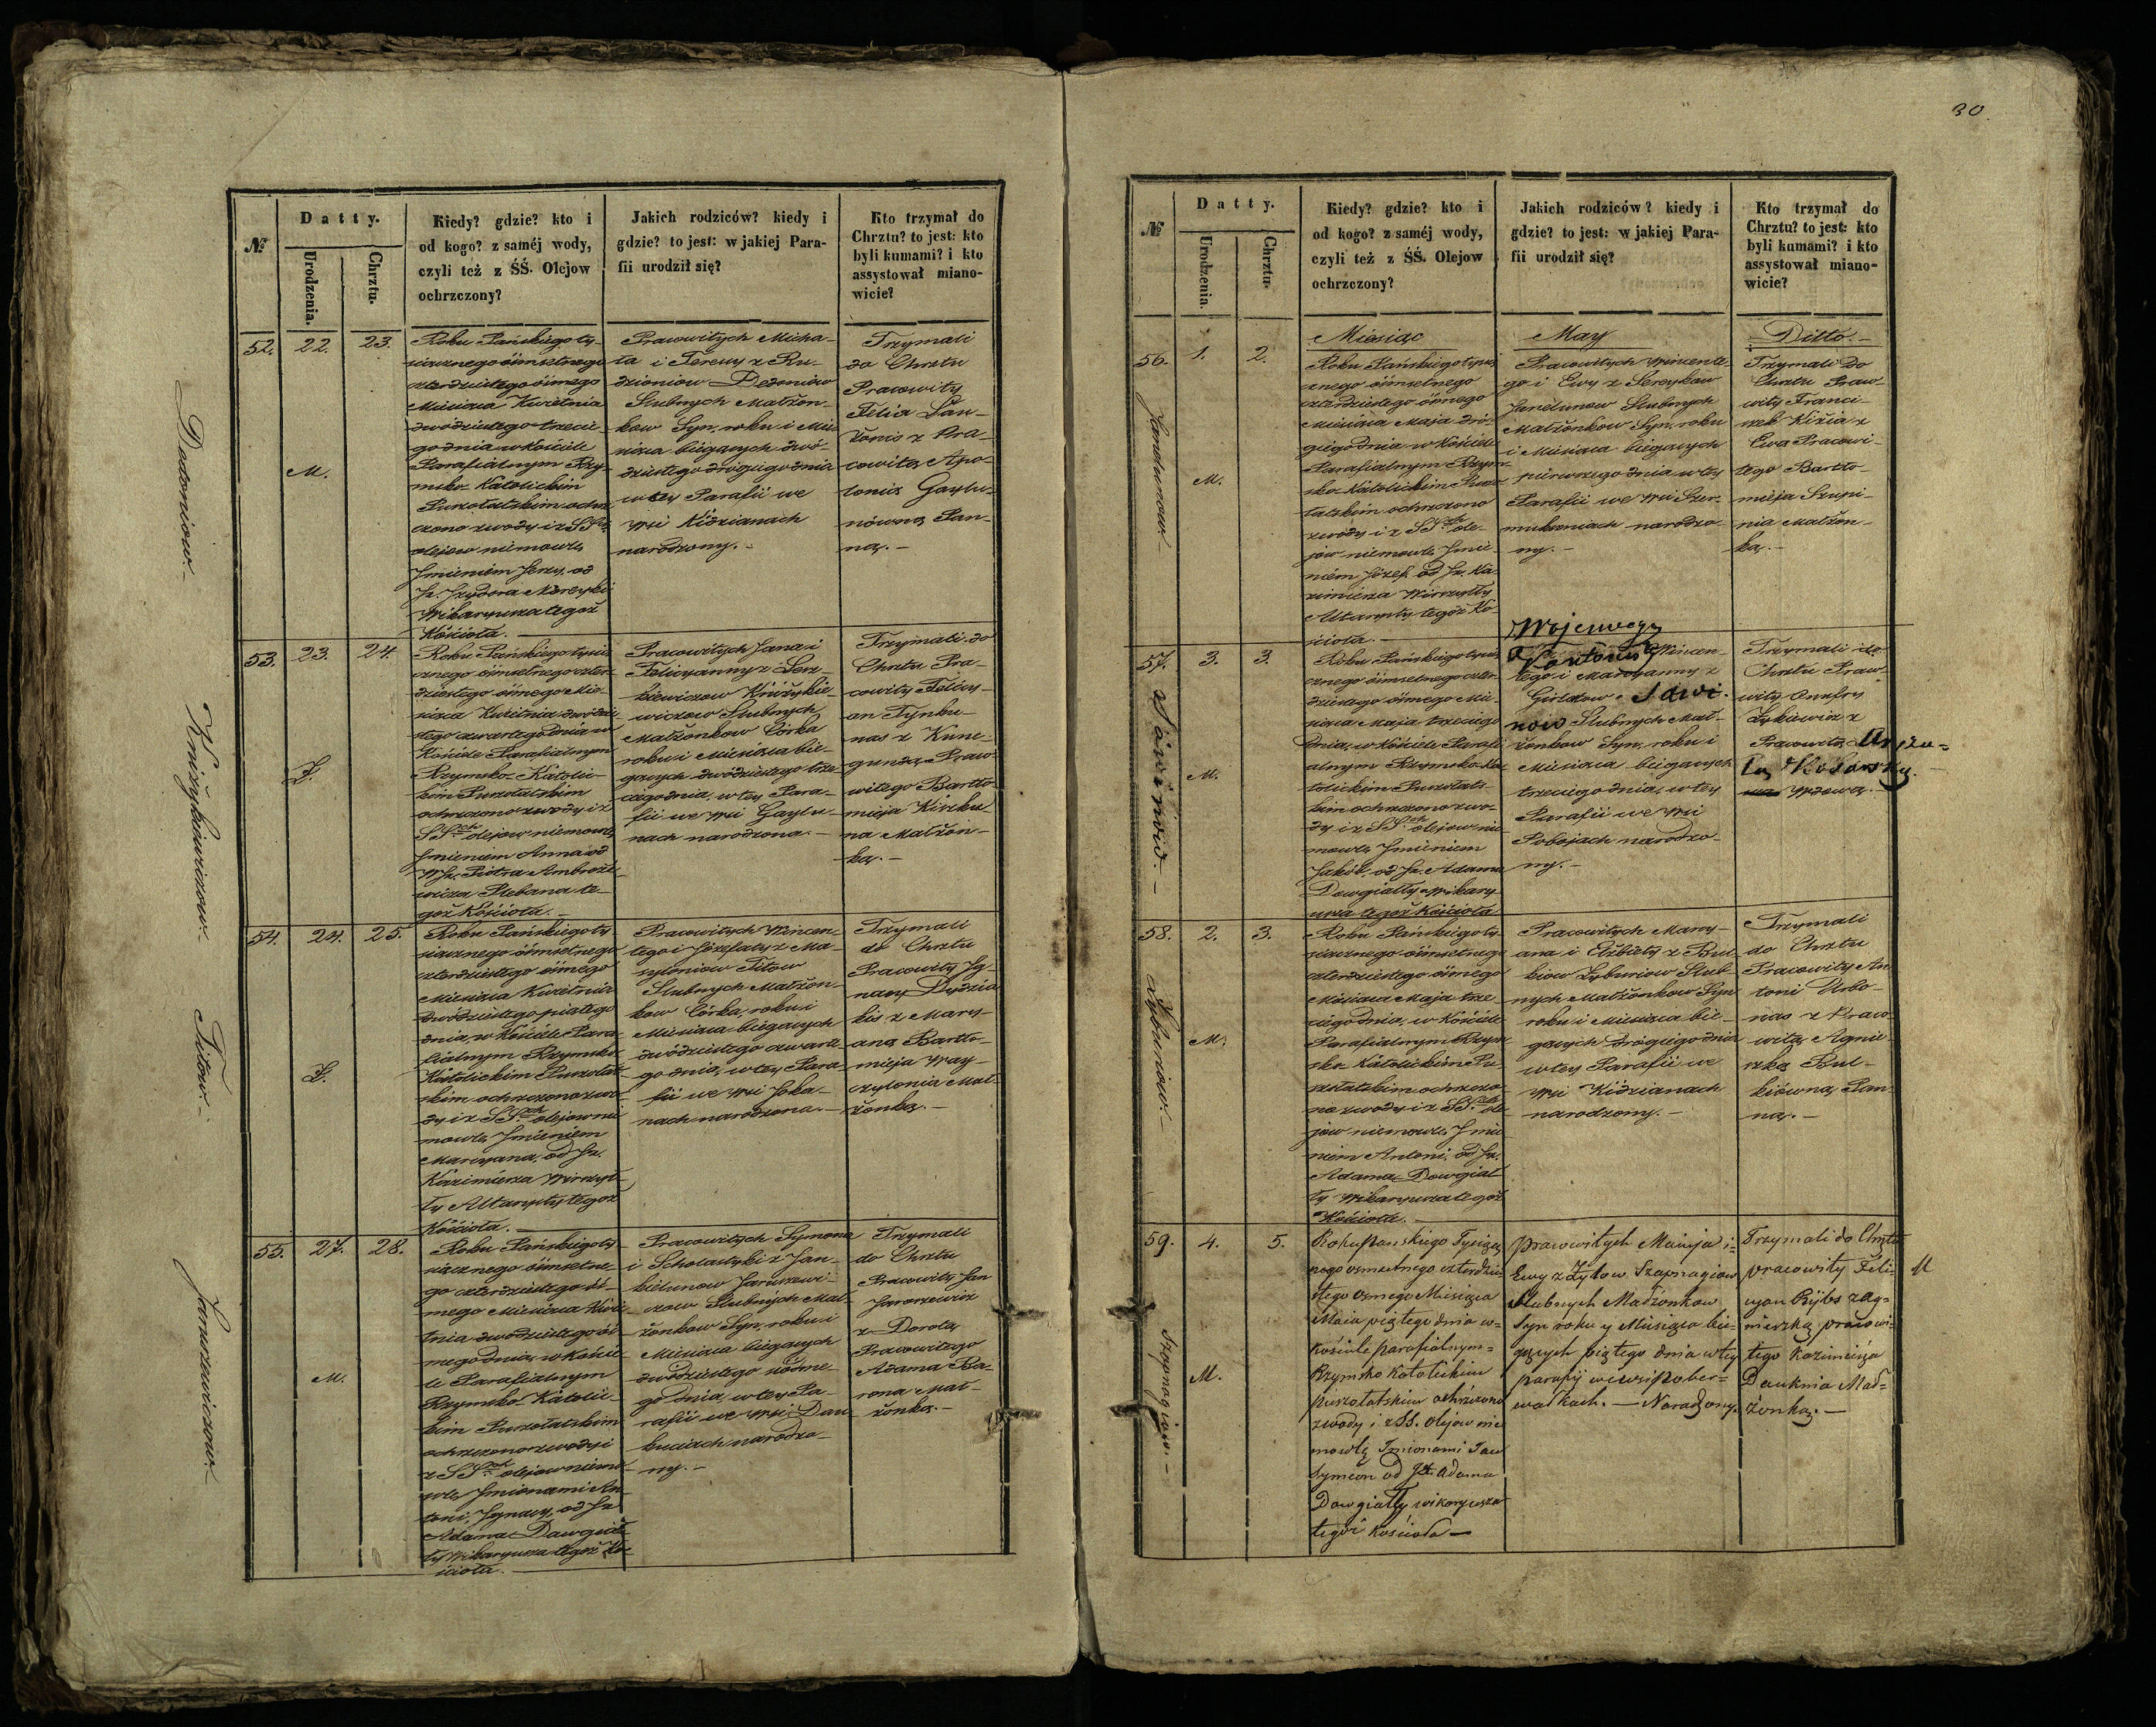 №
Datty.
Urodzenia.
Chrztu.
Kiedy? gdzie? kto i
od kogo? z saméj wody,
czyli też z ŚŚ. Olejow
ochrzczony?
Jakich rodziców? kiedy i
gdzie? to jest: w jakiej Para-
fii urodził się?
Kto trzymał do
Chrztu? to jest: kto
byli kumami? i kto
assystował miano-
wicie?
52. 22. 23.
M.
Roku Pańskiego ty-
siącznego ósmsetnego
czterdziestego ósmego
Miesiąca Kwietnia
dwódziestego trzecie-
go dnia w Kościele
Parafialnym Rzy-
msko-Katolickim
Puszołatskim ochrz-
czono z wody i z SS.
olejow niemowle
Jmieniem Jerzy, od
Jx. Jzydora
Wikaryusza tegoż
Kościoła.
Pracowitych Micha-
ła i Teresy z Ru-
dzioniow Dedoniow
Slubnych Małżon-
kow Syn, roku i Mie-
siąca bieżących dwó-
dziestego drogiego dnia
w tey Parafii we
wsi Kidzianach
narodzony.-
Trzymali
do Chrztu
Pracowity
Felix
z Pra-
cowitą Apo-
lonią Gaylu-
nówną Pan-
ną.-
53. 23. 24.
Ż.
Roku Pańskiego tysią-
cznego ósmsetnego czter-
dziestego ósmego Mie-
siąca Kwietnia dwódzie-
stego czwartego dnia w
Kościele Parafialnym
Rzymsko-Katolic-
kim Puszołatskim
ochrzczono z wody i z
SS. olejow niemowle
Jmieniem Anna od
Wx. Piotra Ambroże-
wicza, Plebana te-
goż Kościoła.-
Pracowitych Jana i
Felicyanny z
Kniżykie-
wiczow Slubnych
Małżonkow Córka
roku i Miesiąca bie-
żących dwódziestego trze-
ciego dnia, w tey Para-
fii we wsi Gaylu-
nach narodzona.-
Trzymali do
Chrztu Pra-
cowity Felicy-
an Tynku-
nas z Kune-
gundą Praco-
witego Bartło-
mieja
na Małżon-
ką.-
54. 24. 25.
Ż.
Roku Pańskiego ty-
siącznego ósmsetnego
czterdziestego ósmego
Miesiąca Kwietnia
dwódziestego piątego
dnia, w Kościele Para-
fialnym Rzymsko
Katolickim Puszołat-
skim ochrzczono z wo-
dy i z SS. olejow nie-
mowle Jmieniem
Maryana, od Jx.
Kazimierza
Altarysty tegoż
Kościoła.
Pracowitych Wincen-
tego i Jozefaty z Ma-
syloniow Titow
Slubnych Małżon-
kow Córka, roku i
Miesiąca bieżących
dwódziestego czwarte-
go dnia, w tey Para-
fii we wsi Joka-
nach narodzona.-
Trzymali
do Chrztu
Pracowity Jg-
nacy
z Mary-
aną Bartło-
mieja Way-
czylonia Mał-
żonką.-
55. 27. 28.
M.
Roku Pańskiego ty-
siącznego ósmsetne-
go czterdziestego ós-
mego Miesiąca Kwie-
tnia dwodziestego ós-
mego dnia, w Koście-
le Parafialnym
Rzymsko-Katolic-
kim Puszołatskim
ochrzczono z wody i
z SS. olejow niemo-
wle, Jmionami An-
toni, Jgnacy, od Jx.
Adama Dawgiał-
ły Wikaryusza tegoż Ko-
ścioła.
Pracowitych Symona
i Scholastyki z Jan-
kielunow Januszewi-
czow Slubnych Mał-
żonkow Syn, roku i
Miesiąca bieżących
dwódziestego siódme-
go dnia, w tey Pa-
rafii we wsi Dau-
kuciach narodzo-
ny.-
Trzymali
do Chrztu
Pracowity Jan
Januszewicz
z Dorotą
Pracowitego
Adama Ba-
rona Mał-
żonką.-
Dedoniow.-
Kniżykiewiczow
Titow-
Januszewiczow-
30.
№
Datty.
Urodzenia.
Chrztu.
Kiedy? gdzie? kto i
od kogo? z saméj wody,
czyli też z ŚŚ. Olejow
ochrzczony?
Jakich rodziców? kiedy i
gdzie? to jest: w jakiej Para-
fii urodził się?
Kto trzymał do
Chrztu? to jest: kto
byli kumami? i kto
assystował miano-
wicie?
Miesiąc May Ditto.-
56. 1. 2.
M.
Roku Pańskiego tysią-
cznego ósmsetnego
czterdziestego ósmego
Miesiąca Maja dró-
giego dnia, w Kościele
Parafialnym Rzym-
sko-Katolickim Puszo-
łatskim ochrzczono
z wody i z SS. ole-
jow niemowle Jmie-
niem Józef, od Jx. Ka-
zimierza
Altarysty tegoż Ko-
ścioła.-
Pracowitych Wincente-
go i Ewy z Sereykow
Jandunow Slubnych
Małżonkow Syn, roku
i Miesiąca bieżących
pierwszego dnia w tey
Parafii we wsi Szer-
muksniach narodzo-
ny.-
Trzymali do
Chrztu Praco-
wity Franci-
szek z
Ewą Pracowi-
tego Bartło-
mieja Szupi-
nia Małżon-
ką.-
57. 3. 3.
M.
Roku Pańskiego tysią-
cznego ósmsetnego czter-
dziestego ósmego Mie-
siąca Maja trzeciego
dnia, w Kościele Parafi-
alnym Rzymsko-Ka-
tolickim Puszołats-
kim ochrzczono z wo-
dy i z SS. olejow nie-
mowle, Jmieniem
Jakób, od Jx. Adama
Dawgiałły Wikary-
usza tegoż Kościoła
Wojennego
Kantonisty Wincen-
tego i Maryanny z
Girdzow Sawi-
now Slubnych Mał-
żonkow Syn, roku i
Miesiąca bieżących
trzeciego dnia, w tey
Parafii we wsi
Pobojach narodzo-
ny.-
Trzymali do
Chrztu Praco-
wity Onufry
Zykiewicz z
Pracowitą Urszu-
lą Kosowską
Wdową.-
58. 2. 3.
M.
Roku Pańskiego ty-
siącznego ósmsetnego
czterdziestego ósmego
Miesiąca Maja trze-
ciego dnia, w Kościele
Parafialnym Rzym-
sko-Katolickim Pu-
szołatskim ochrzczo-
no z wody i z SS. ole-
jow niemowle, Jmie-
niem Antoni, od Jx.
Adama Dowgiał-
ły Wikaryusza tegoż
Kościoła.-
Pracowitych Mary-
ana i Elżbiety z Bul-
kiow Zyburiow Slub-
nych Małżonkow Syn
roku i Miesiąca bie-
żących drogiego dnia
w tey Parafii we
wsi Kidzianach
narodzony.-
Trzymali
do Chrztu
Pracowity An-
toni Urbo-
nas z Praco-
witą Agnie-
szką Bul-
kiówną Pan-
ną.-
59. 4. 5.
M.
Roku pańskiego Tysiącz-
nego osmsetnego czterdzie-
stego osmego Miesiąca
Maia piątego dnia w-
kościele parafialnym-
Rzymsko Katolickim
puszołatskim ochrzczono
z wody i z SS. olejow nie-
mowlę Jmionami Jan
Symeon od Jx. Adama
Dowgiałły wikaryusza
tegoż kościoła-
pracowitych Macieja i-
Ewy z Zytow Szapnagiow
Slubnych Małżonkow
Syn roku y Miesiąca bie-
żących piątego dnia w tey
parafij we wsi pober-
wałkach.- Narodzony.
Trzymali do Chrztu
pracowity Feli-
cyan Ryjbs z Ag-
nieszką pracowi-
tego Kazimierza
Dauknia Mał-
żonką.-
Jandunow-
Sawinow.-
Zyburiow.-
Szapnagiow.-